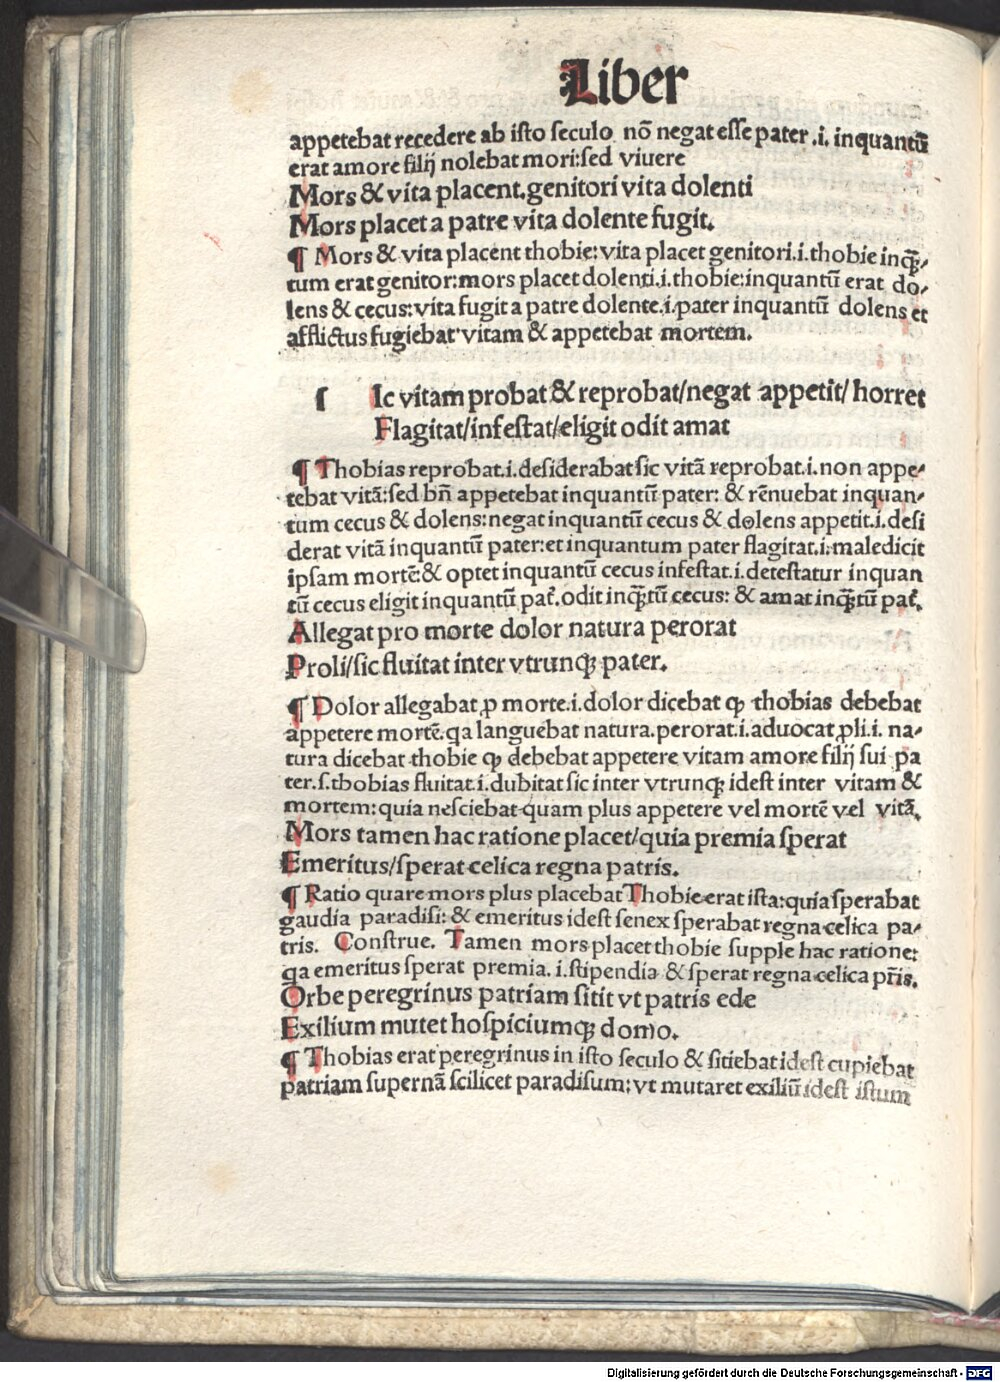 Liber
appetebat recedere ab iſto ſeculo nō negat eſſe pater .i. inquantū
erat amore filij nolebat mori:ſed viuere
Mors & vita placent.genitori vita dolenti
Mors placet a patre vita dolente fugit.
¶ Mors & vita placent thobie: vita placet genitori.i.thobie inq̄-
tum erat genitor:mors placet dolenti.i.thobie:inquantū erat do-
lens & cecus:vita fugit a patre dolente.i.pater inquantū dolens et
afflictus fugiebat vitam & appetebat mortem.
ſ Ic vitam probat & reprobat/negat appetit/ horret
Flagitat/infeſtat/eligit odit amat
¶ Thobias reprobat.i.deſiderabat ſic vitā reprobat.i.non appe-
tebat vitā:ſed bñ appetebat inquantū pater: & rēnuebat inquan-
tum cecus & dolens:negat inquantū cecus & dolens appetit.i.deſi
derat vitā inquantū pater:et inquantum pater flagitat.i.maledicit
ipſam mortē:& optet inquantū cecus infeſtat.i.deteſtatur inquan
tū cecus eligit inquantū pat̄.odit inq̄tū cecus: & amat inq̄tū pat̄.
Allegat pro morte dolor natura perorat
Proli/ſic fluitat inter vtrunqꝫ pater.
¶ Dolor allegabat ꝓ morte.i.dolor dicebat ꝙ thobias debebat
appetere mortē.qa languebat natura.perorat.i.aduocat ꝓli.i. na-
tura dicebat thobie ꝙ debebat appetere vitam amore filij ſui pa
ter.ſ.thobias fluitat.i.dubitat ſic inter vtrunqꝫ ideſt inter vitam &
mortem:quia neſciebat quam plus appetere vel mortē vel vitā.
Mors tamen hac ratione placet/quia premia ſperat
Emeritus/ſperat celica regna patris.
¶ Ratio quare mors plus placebat Thobie erat iſta:quia ſperabat
gaudia paradiſi: & emeritus ideſt ſenex ſperabat regna celica pa-
tris. Conſtrue. Tamen mors placet thobie ſupple hac ratione:
qa emeritus ſperat premia. i.ſtipendia & ſperat regna celica pr̄is.
Orbe peregrinus patriam ſitit vt patris ede
Exilium mutet hoſpiciumqꝫ domo.
¶ Thobias erat peregrinus in iſto ſeculo & ſitiebat ideſt cupiebat
patriam ſupernā ſcilicet paradiſum: vt mutaret exiliū ideſt iſtum
Digitalisierung gefördert durch die Deutsche Forschungsgemeinschaft - DFG